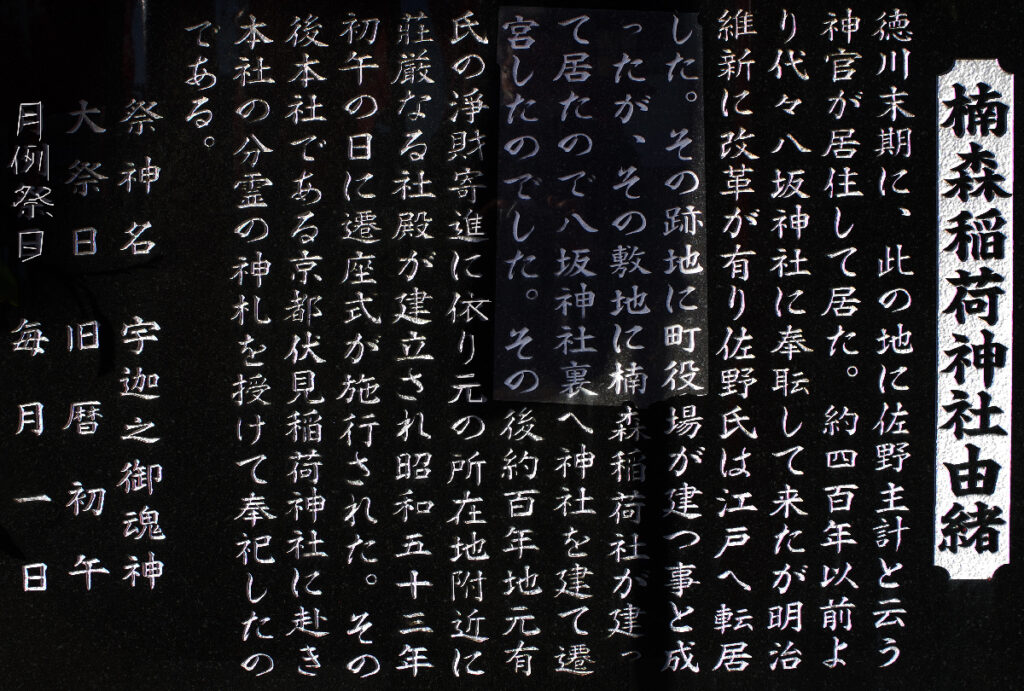 楠森稲荷神社由緒
徳川末期に、此の地に佐野主計と云う
神官が居住して居た。約四百年以前よ
り代々八坂神社に奉耺して来たが明治
維新に改革が有り佐野氏は江戸へ転居
した。その跡地に町役場が建つ事と成
ったが、その敷地に楠森稲荷社が建っ
て居たので八坂神社裏へ神社を建て遷
宮したのでした。その後約百年地元有
氏の淨財寄進に依り元の所在地附近に
荘厳なる社殿が建立され昭和五十三年
初午の日に遷座式が施行された。その
後本社である京都伏見稲荷神社に赴き
本社の分霊の神札を授けて奉祀したの
である。
祭神名 宇迦之御魂神
大祭日 旧暦初午
月例祭日 毎月一日